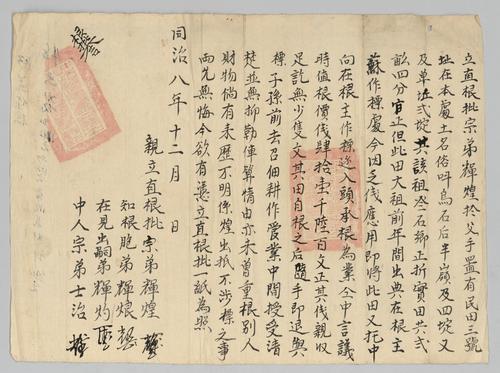 立直根批宗弟輝煌於父手置有民田三號
址在本處土名俗呌烏石后半嶺及四埞又
及单坵式埞其該租冷石鄉正折實田共弍
畝四分官正但此田大租前年間出典在根主
蘇作標處今因乏伐應用即將此田又托中
向在根主作標邊入頭承根為業仝中言議
時值根價伐肆拾壹千陸百文正其伐親收
足訖無少隻文其田自根之后隨手即退與
標子孫前去召佃耕作爱業中間授受清
楚並無抑勒俥算情由亦未曾重根別人
財物倘有来歷不明係煌出抵不涉標之事
両允無悔今欲有憑立直根批一紙為照
同治八年十二月 日
親立直根批宗弟輝煌
知根胞弟輝烺
在見出嗣弟輝灼
中人宗弟士治